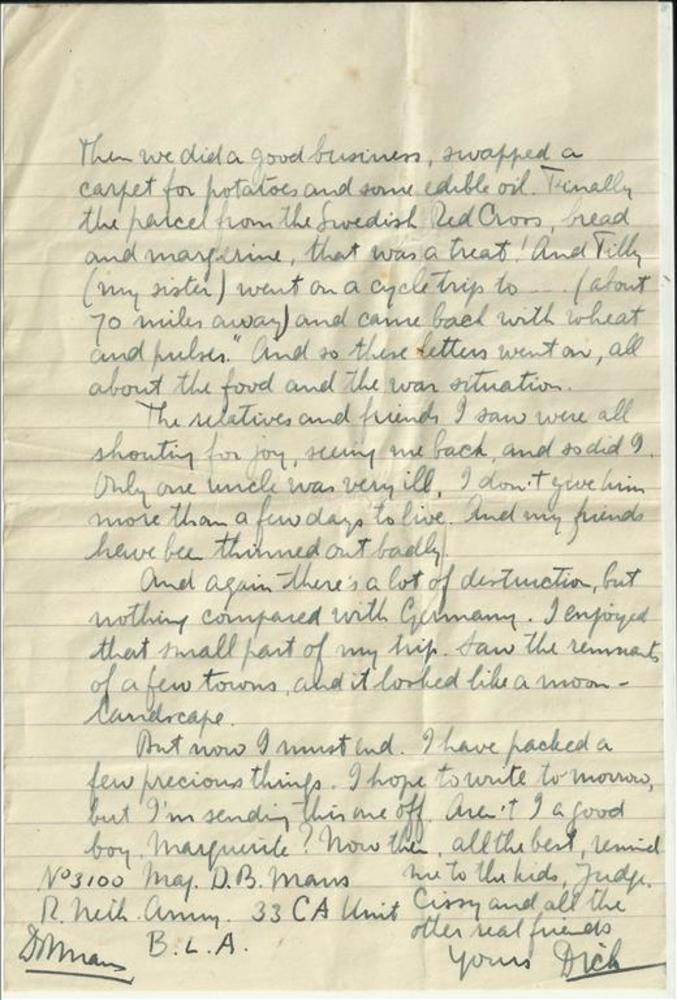 Then we did a good business, swapped a
carpet for potatoes and some edible oil. Finally
the parcel from the Swedish Red Cross, bread
and margerine, that was a treat! And Tilly
(my sister) went on a cycle trip to ---- (about
70 miles away) and came back with wheat
and pulses." And so these letters went on, all
about the food and the war situation.
The relatives and friends I saw were all
shouting for joy, seeing me back, and so did I.
Only one uncle was very ill, I don't give him
more than a few days to live. And my friends
have bee thinned out badly.
And again there's a lot of destruction, but
nothing compared with Germany. I enjoyed
that small part of my trip. Saw the remnants
of a few towns, and it looked like a moon-
landscape.
But now I must end. I have packed a
few precious things. I hope to write to morrow,
but I'm sending this one off. Aren't I a good
boy, Marguerite? Now then, all the best, remind
me to the kids, Judge,
Cissy and all the
other real friends
Yours Dick
No 3100 Maj. D.B. Mans
R. Neth. Army. 33 CA Unit
B.L.A.
DBMans